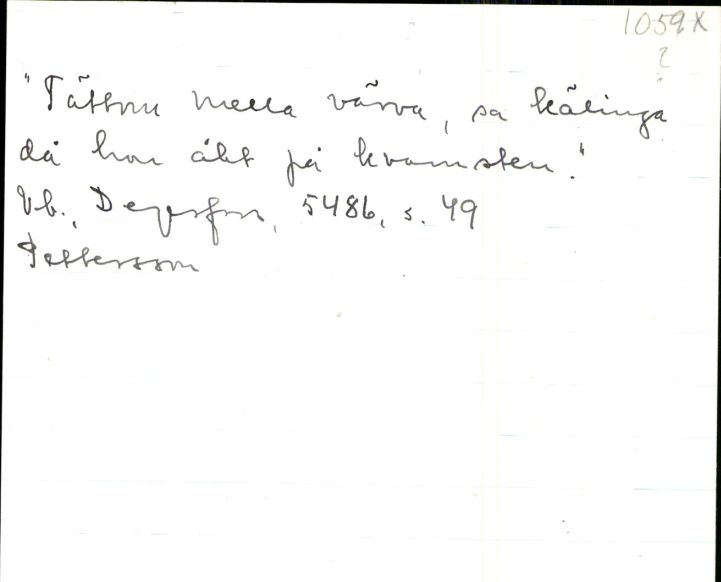 1059X
?
"Tättom mella värva, sa kälinga
då hon åkt på kvarnsten."
Vb., Degerfors, 5486, s. 49
Pettersson